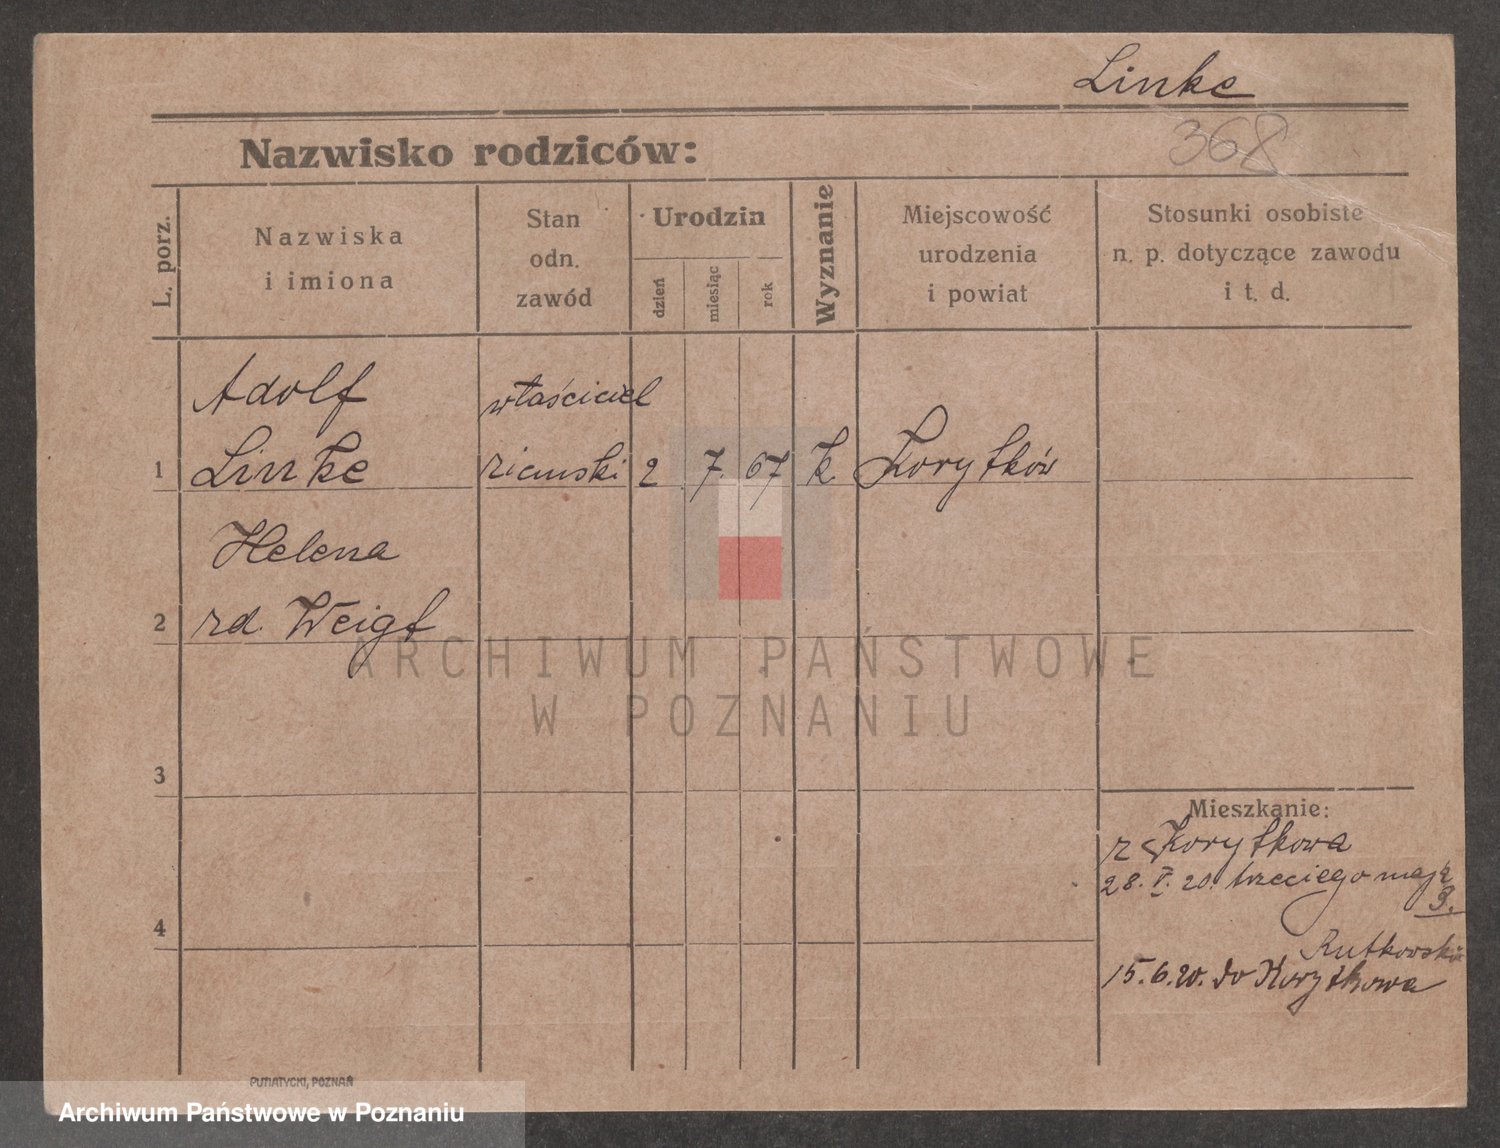 Linke
368
Nazwisko rodziców:
L. porz.
Nazwiska
i imiona
Stan
odn.
zawód
Urodzin
dzień
miesiąc
rok
Wyznanie
Miejscowość
urodzenia
i powiat
Stosunki osobiste
n. p. dotyczące zawodu
i t. d.
Adolf właściciel
1 Linke ziemski 2 7. 67 k. Korytków
Helena
2 rd. Weigt
ARCHIWUM PAŃSTWOWE
W POZNANIU
3
Mieszkanie:
z Korytkowa
28. V. 20. trzeciego maja
3.
4
Rutkowski
15.6.20. do Korytkowa
PUTIATYCKI, POZNAŃ
Archiwum Państwowe w Poznaniu